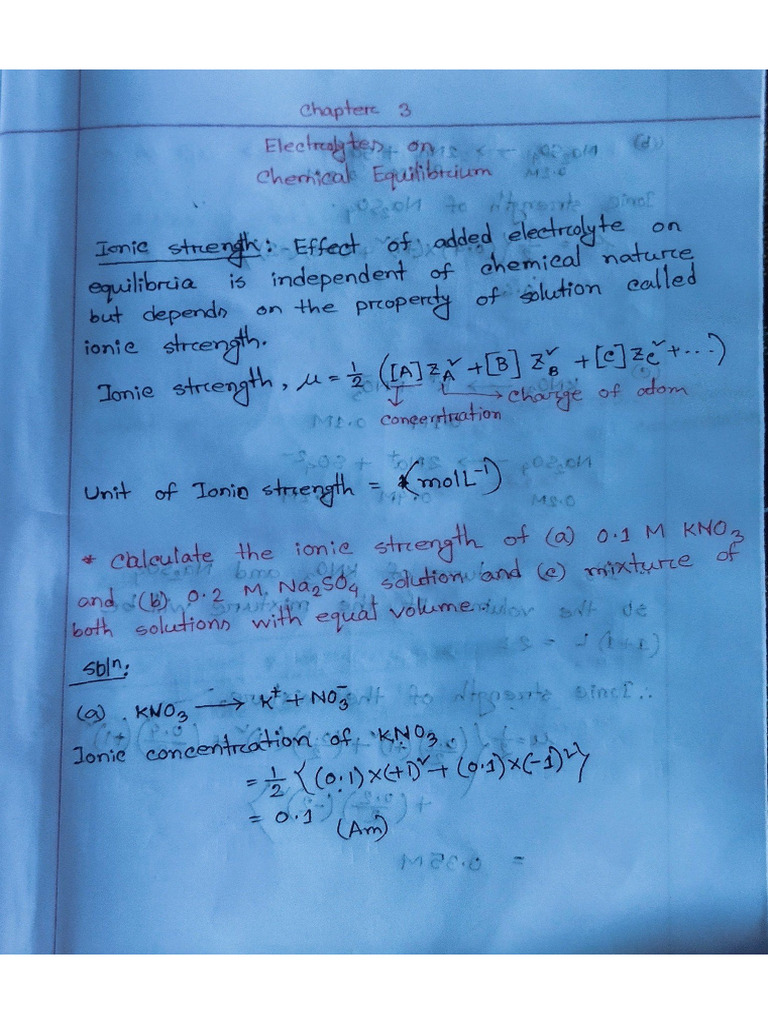 Chapter 3
Electrolytes on
Chemical Equilibrium
Ionic strength: Effect of added electrolyte on
equilibria is independent of chemical nature
but depends on the property of solution called
ionic strength.
Ionic strength, μ = 1/2 ([A] Z_A² + [B] Z_B² + [C] Z_C² + ...)
→ charge of atom
concentration
Unit of Ionic strength = (mol L⁻¹)
* Calculate the ionic strength of (a) 0.1 M KNO₃
and (b) 0.2 M, Na₂SO₄ solution and (c) mixture of
both solutions with equal volume.
Solⁿ:
(a) KNO₃ → K⁺ + NO₃⁻
Ionic concentration of KNO₃.
= 1/2 {(0.1)×(+1)² + (0.1)×(-1)²}
= 0.1 (Am)